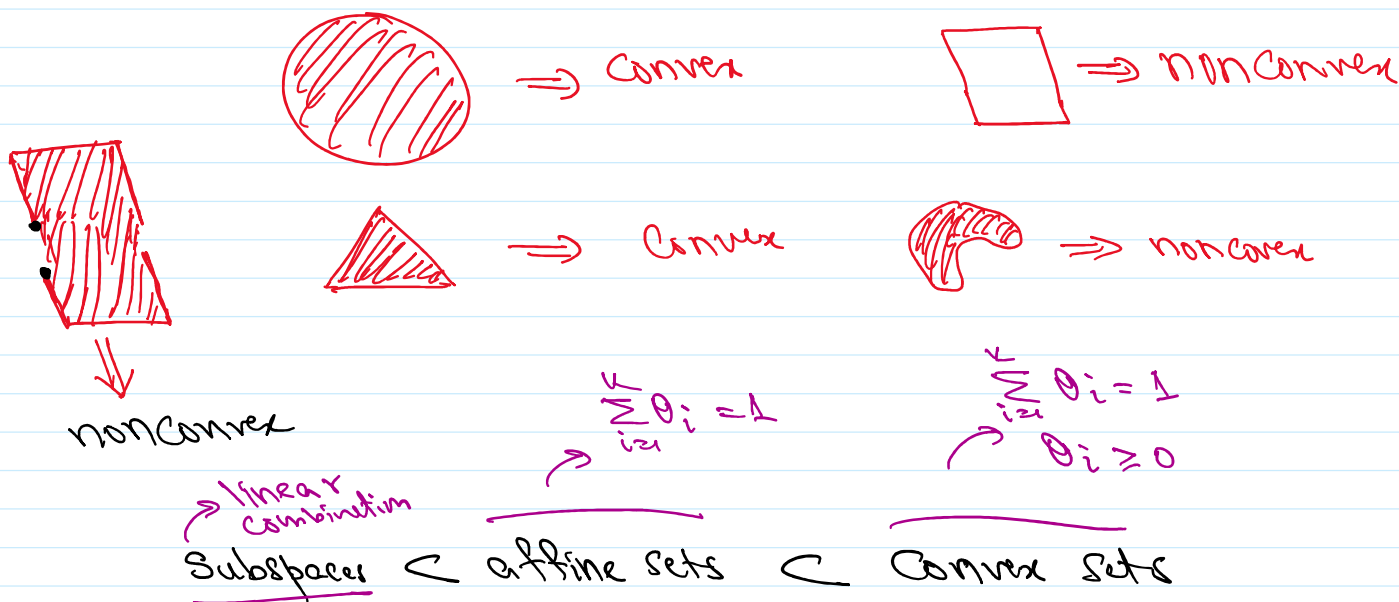 ⇒ convex
⇒ nonconvex
⇒ convex
⇒ nonconvex
⇓
nonconvex
∑_{i=1}^{k} θ_i = 1
∑_{i=1}^{k} θ_i = 1
θ_i ≥ 0
linear
combination
Subspaces ⊂ affine sets ⊂ Convex sets